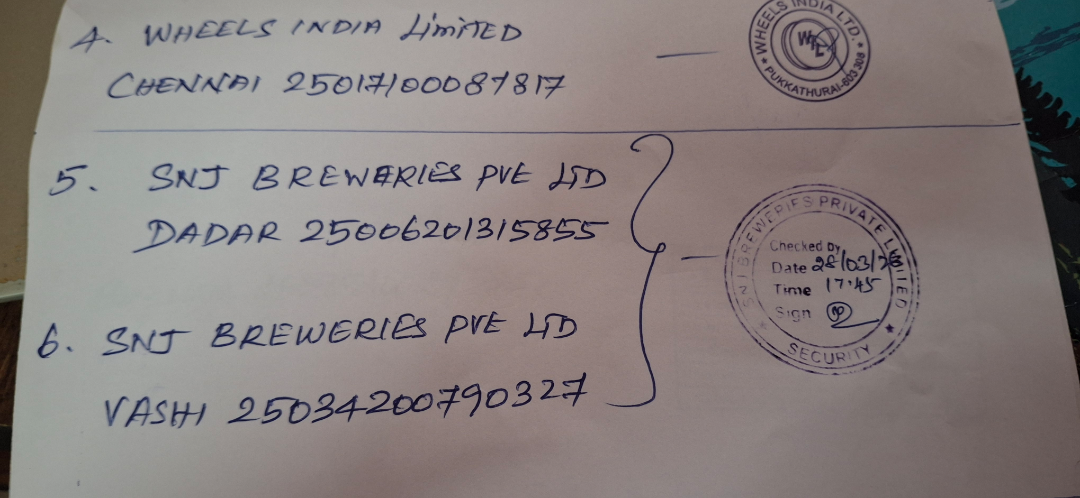 4. WHEELS INDIA LIMITED
CHENNAI 25017100087817
WHEELS INDIA LTD.
WIL
★ PUKKATHURAI-603 308 ★
5. SNJ BREWERIES PVE LTD
DADAR 25006201315855
SNJ BREWERIES PRIVATE LIMITED
Checked by
Date 28/03/26
Time 17:45
Sign
★ SECURITY ★
6. SNJ BREWERIES PVE LTD
VASHI 25034200790327